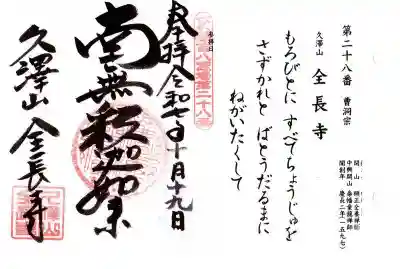 第二十八番 曹洞宗
久澤山 全長寺
もろびとに すべてちょうじゅを
さずかれと ばとうだるまに
ねがいたくして
開創年 慶長二年(一五九七)
参拝日
奉拝 令和七年十月十九日
南無釈迦如来
久澤山 全長寺